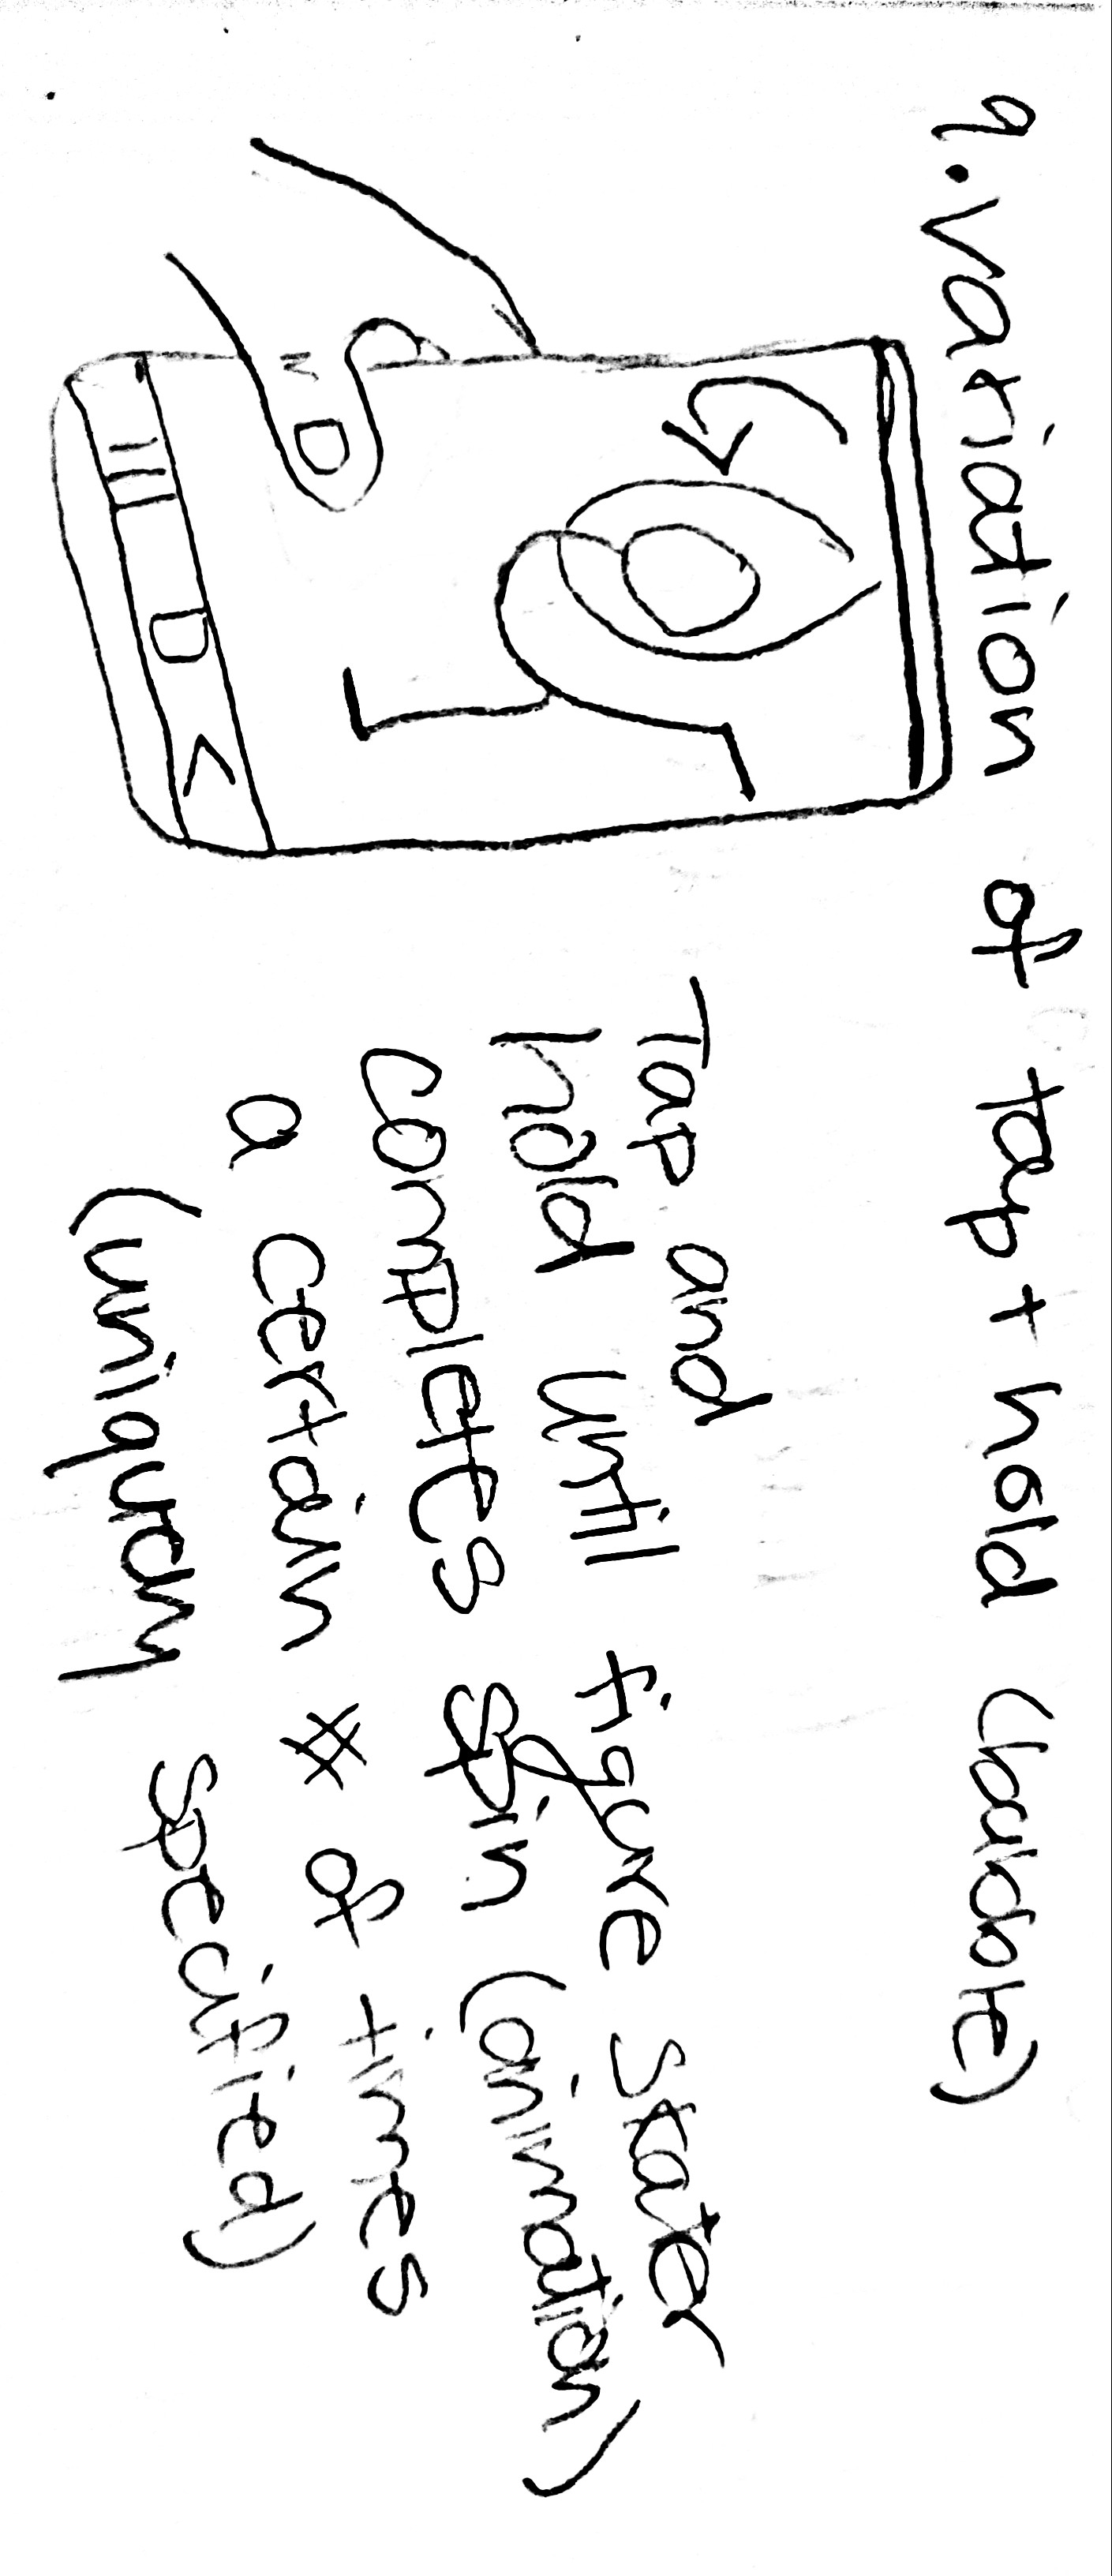 9. variation of tap + hold (bubble)
Tap and
hold until figure skater
completes spin (animation)
a certain # of times
(uniquely specified)